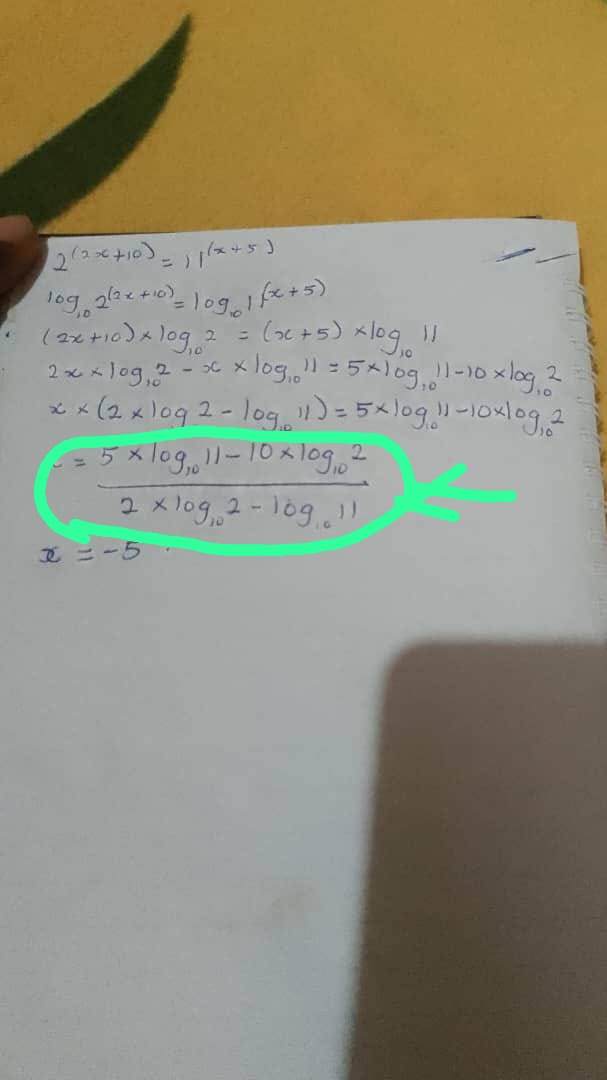 2^(2x+10) = 11^(x+5)
log₁₀ 2^(2x+10) = log₁₀ 11^(x+5)
(2x+10) × log₁₀ 2 = (x+5) × log₁₀ 11
2x × log₁₀ 2 - x × log₁₀ 11 = 5 × log₁₀ 11 - 10 × log₁₀ 2
x × (2 × log₁₀ 2 - log₁₀ 11) = 5 × log₁₀ 11 - 10 × log₁₀ 2
= 5 × log₁₀ 11 - 10 × log₁₀ 2
2 × log₁₀ 2 - log₁₀ 11
x = -5